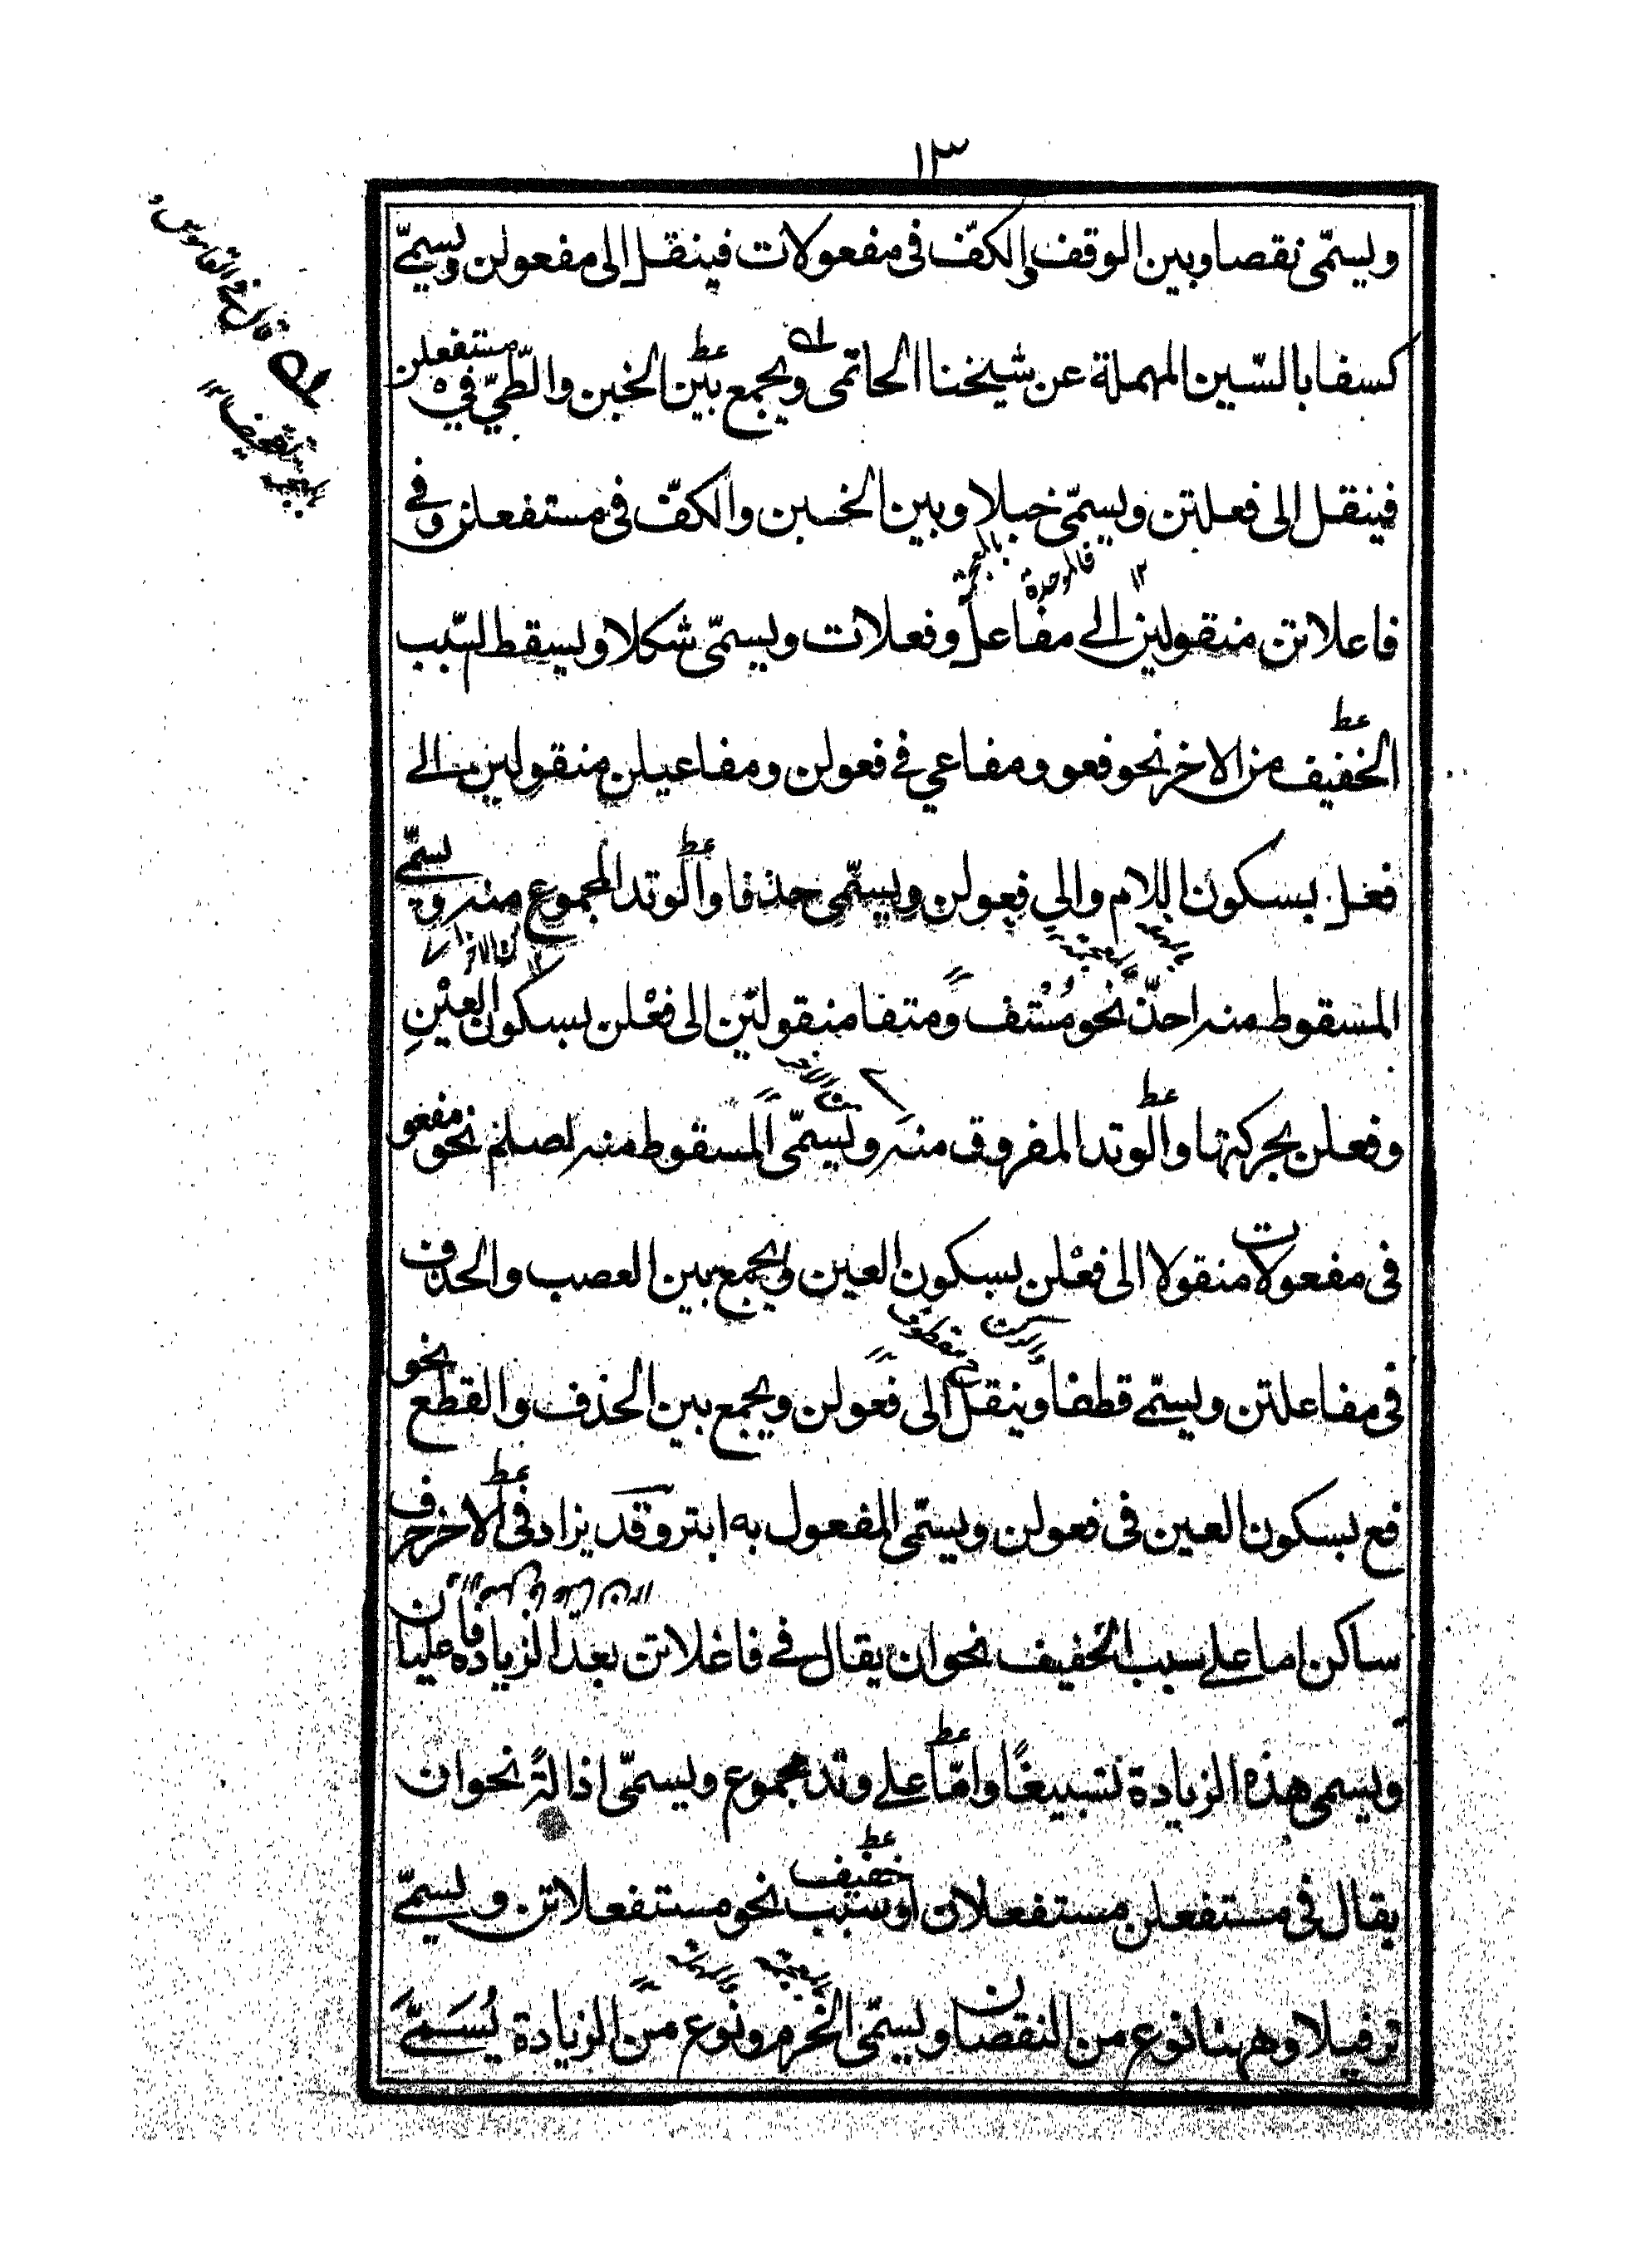 ١٣
ويسمّى نقصا وبين الوقف والكفّ فى مفعولات فينقل الى مفعولن ويسمّى
كسفا بالسّين المهملة عن شيخنا الحاتمى ويجمع بين الخبن والطّيّ في مستفعلن
فينقل الى فعلتن ويسمّى خبلا وبين الخبن والكفّ فى مستفعلن وفي
فاعلاتن منقولين الى مفاعل وفعلات ويسمّى شكلا ويسقط السّبب
الخفيف من الاخر نحو فعو ومفاعي في فعولن ومفاعيلن منقولين الى
فعل بسكون اللام والى فعولن ويسمّى حذفا والوتد المجموع منه ويسمّى
المسقوط منه احذّ نحو مُسْتف ومتفا منقولين الى فعْلن بسكون العيْنِ
وفعلن بحركتها والوتد المفروق منه ويسمّى المسقوط منه اصلم نحو مفعو
فى مفعولات منقولا الى فعْلن بسكون العين ويجمع بين العصب والحذف
فى مفاعلتن ويسمّى قطفا وينقل الى فعولن ويجمع بين الحذف والقطع نحو
فع بسكون العين فى فعولن ويسمّى المفعول به ابتر وقد يزاد فى الاخر حرف
ساكن اما على سبب الخفيف نحو ان يقال في فاعلاتن بعد الزيادة فاعليان
ويسمى هذه الزيادة تسبيغًا وامّا على وتد مجموع ويسمّى اذالةً نحو ان
يقال فى مستفعلن مستفعلان او سبب خفيف نحو مستفعلاتن ويسمّى
ترفيلا وههنا نوع من النقصان ويسمّى الخرم ونوع من الزيادة يُسَمّى